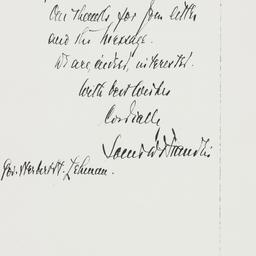 Our thanks for your letter
and the message.
We are, indeed, interested.
With best wishes
Cordially
Gov. Herbert H. Lehman.